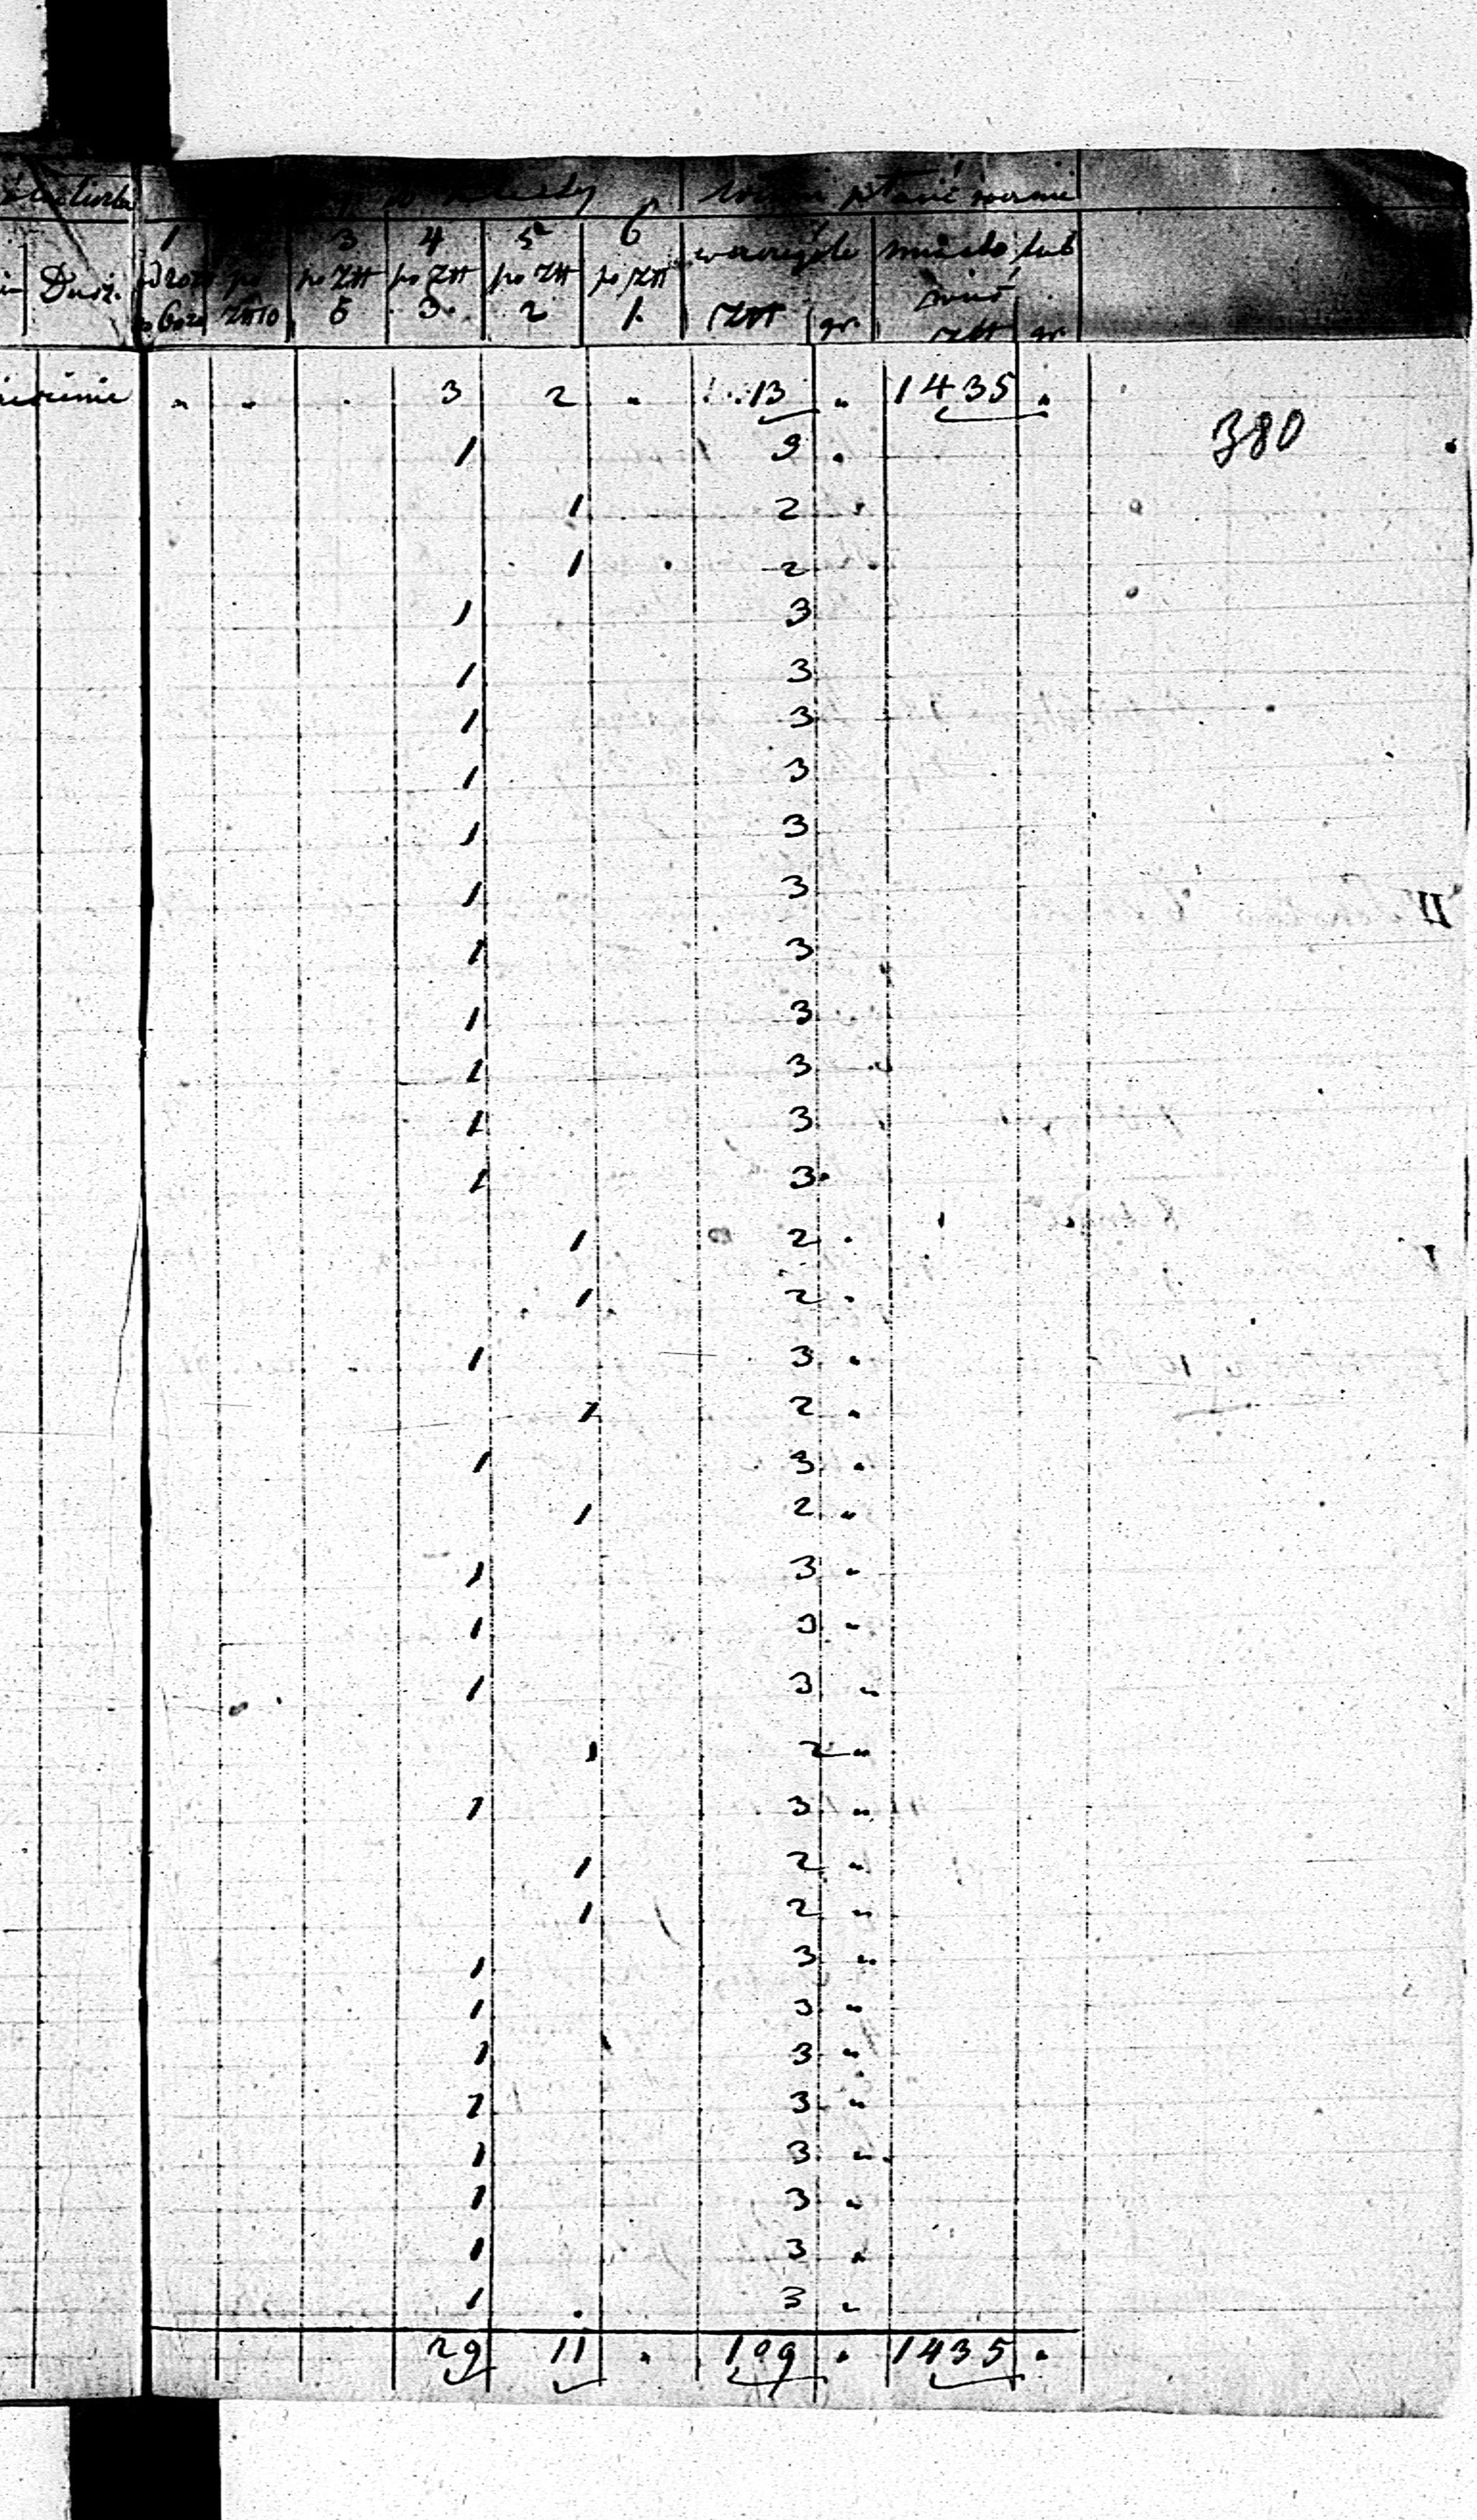 1 3 4 5 6
Duż. po po Złt po Złt po Złt po Złt miasto lub
Złt10 5 3. 2 1. Złt gr. wieś
złt gr
" " . 3 2 " 13 " 1435 "
380
1 3 .
1 2 "
1 2
1 3
1 3
1 3
1 3
1 3
1 3
1 3
1 3
1 3
1 3
1 3
1 2 .
1 2 .
1 3 .
1 2 .
1 3 .
1 2 "
1 3 "
1 3 "
1 3 "
1 2 "
1 3 "
1 2 "
1 2 "
1 3 "
1 3 "
1 3 "
1 3 "
1 3 "
1 3 "
1 3 "
1 3 "
29 11 . 109 . 1435 .